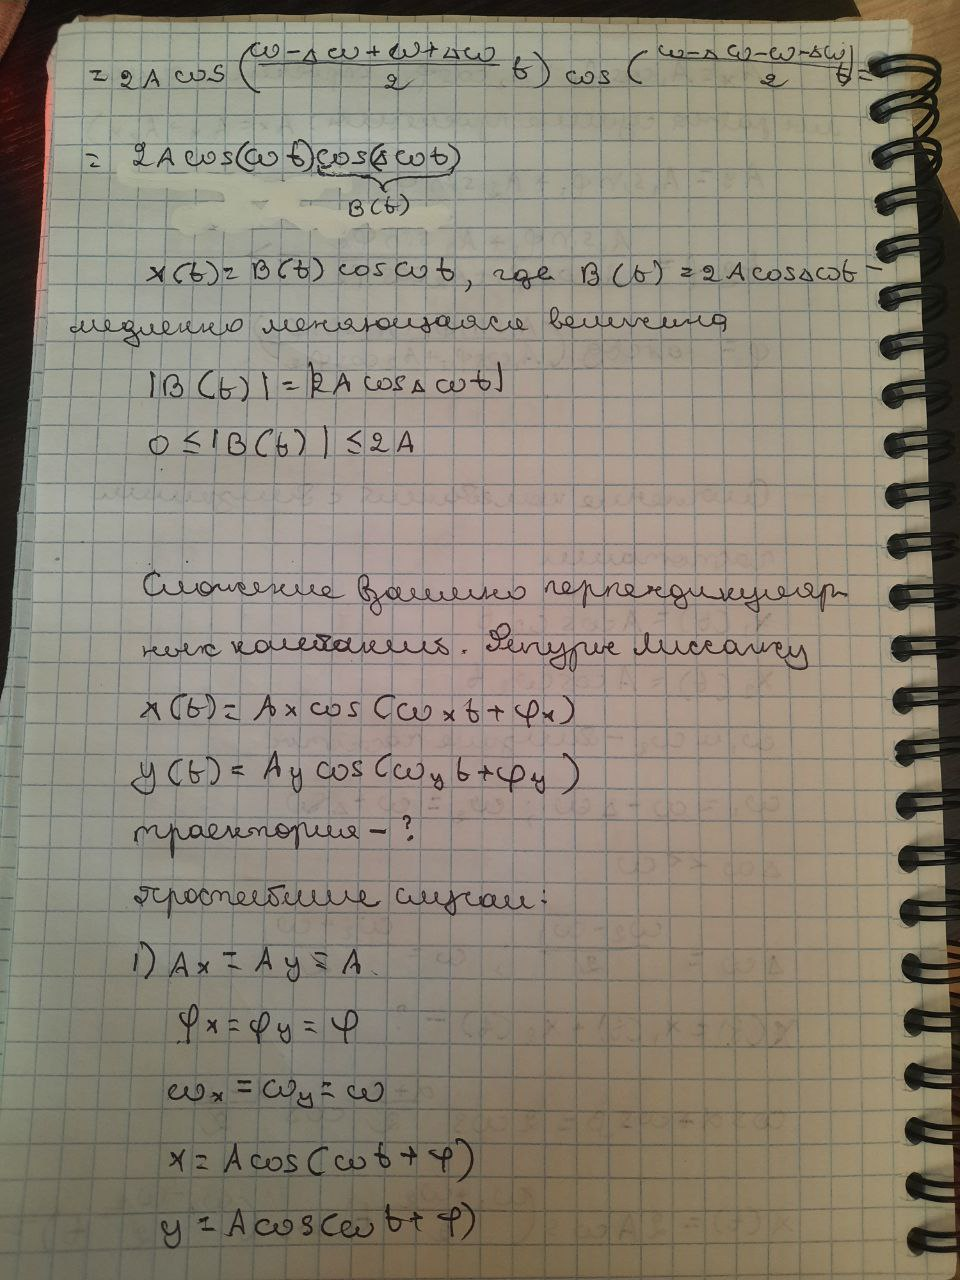 = 2A cos (\frac{ω-Δω+ω+Δω}{2} t) cos (\frac{ω-Δω-ω-Δω}{2} t) =
= 2A cos(ωt) cos(Δωt)
B(t)
x(t) = B(t) cos ωt, где B(t) = 2A cosΔωt –
медленно меняющаяся величина
|B(t)| = |2A cosΔωt|
0 ≤ |B(t)| ≤ 2A
Сложение взаимно перпендикуляр-
ных колебаний. Фигуры Лиссажу
x(t) = Ax cos(ωx t + φx)
y(t) = Ay cos(ωy t + φy)
траектория – ?
Простейшие случаи:
1) Ax = Ay = A.
φx = φy = φ
ωx = ωy = ω
x = A cos(ωt + φ)
y = A cos(ωt + φ)